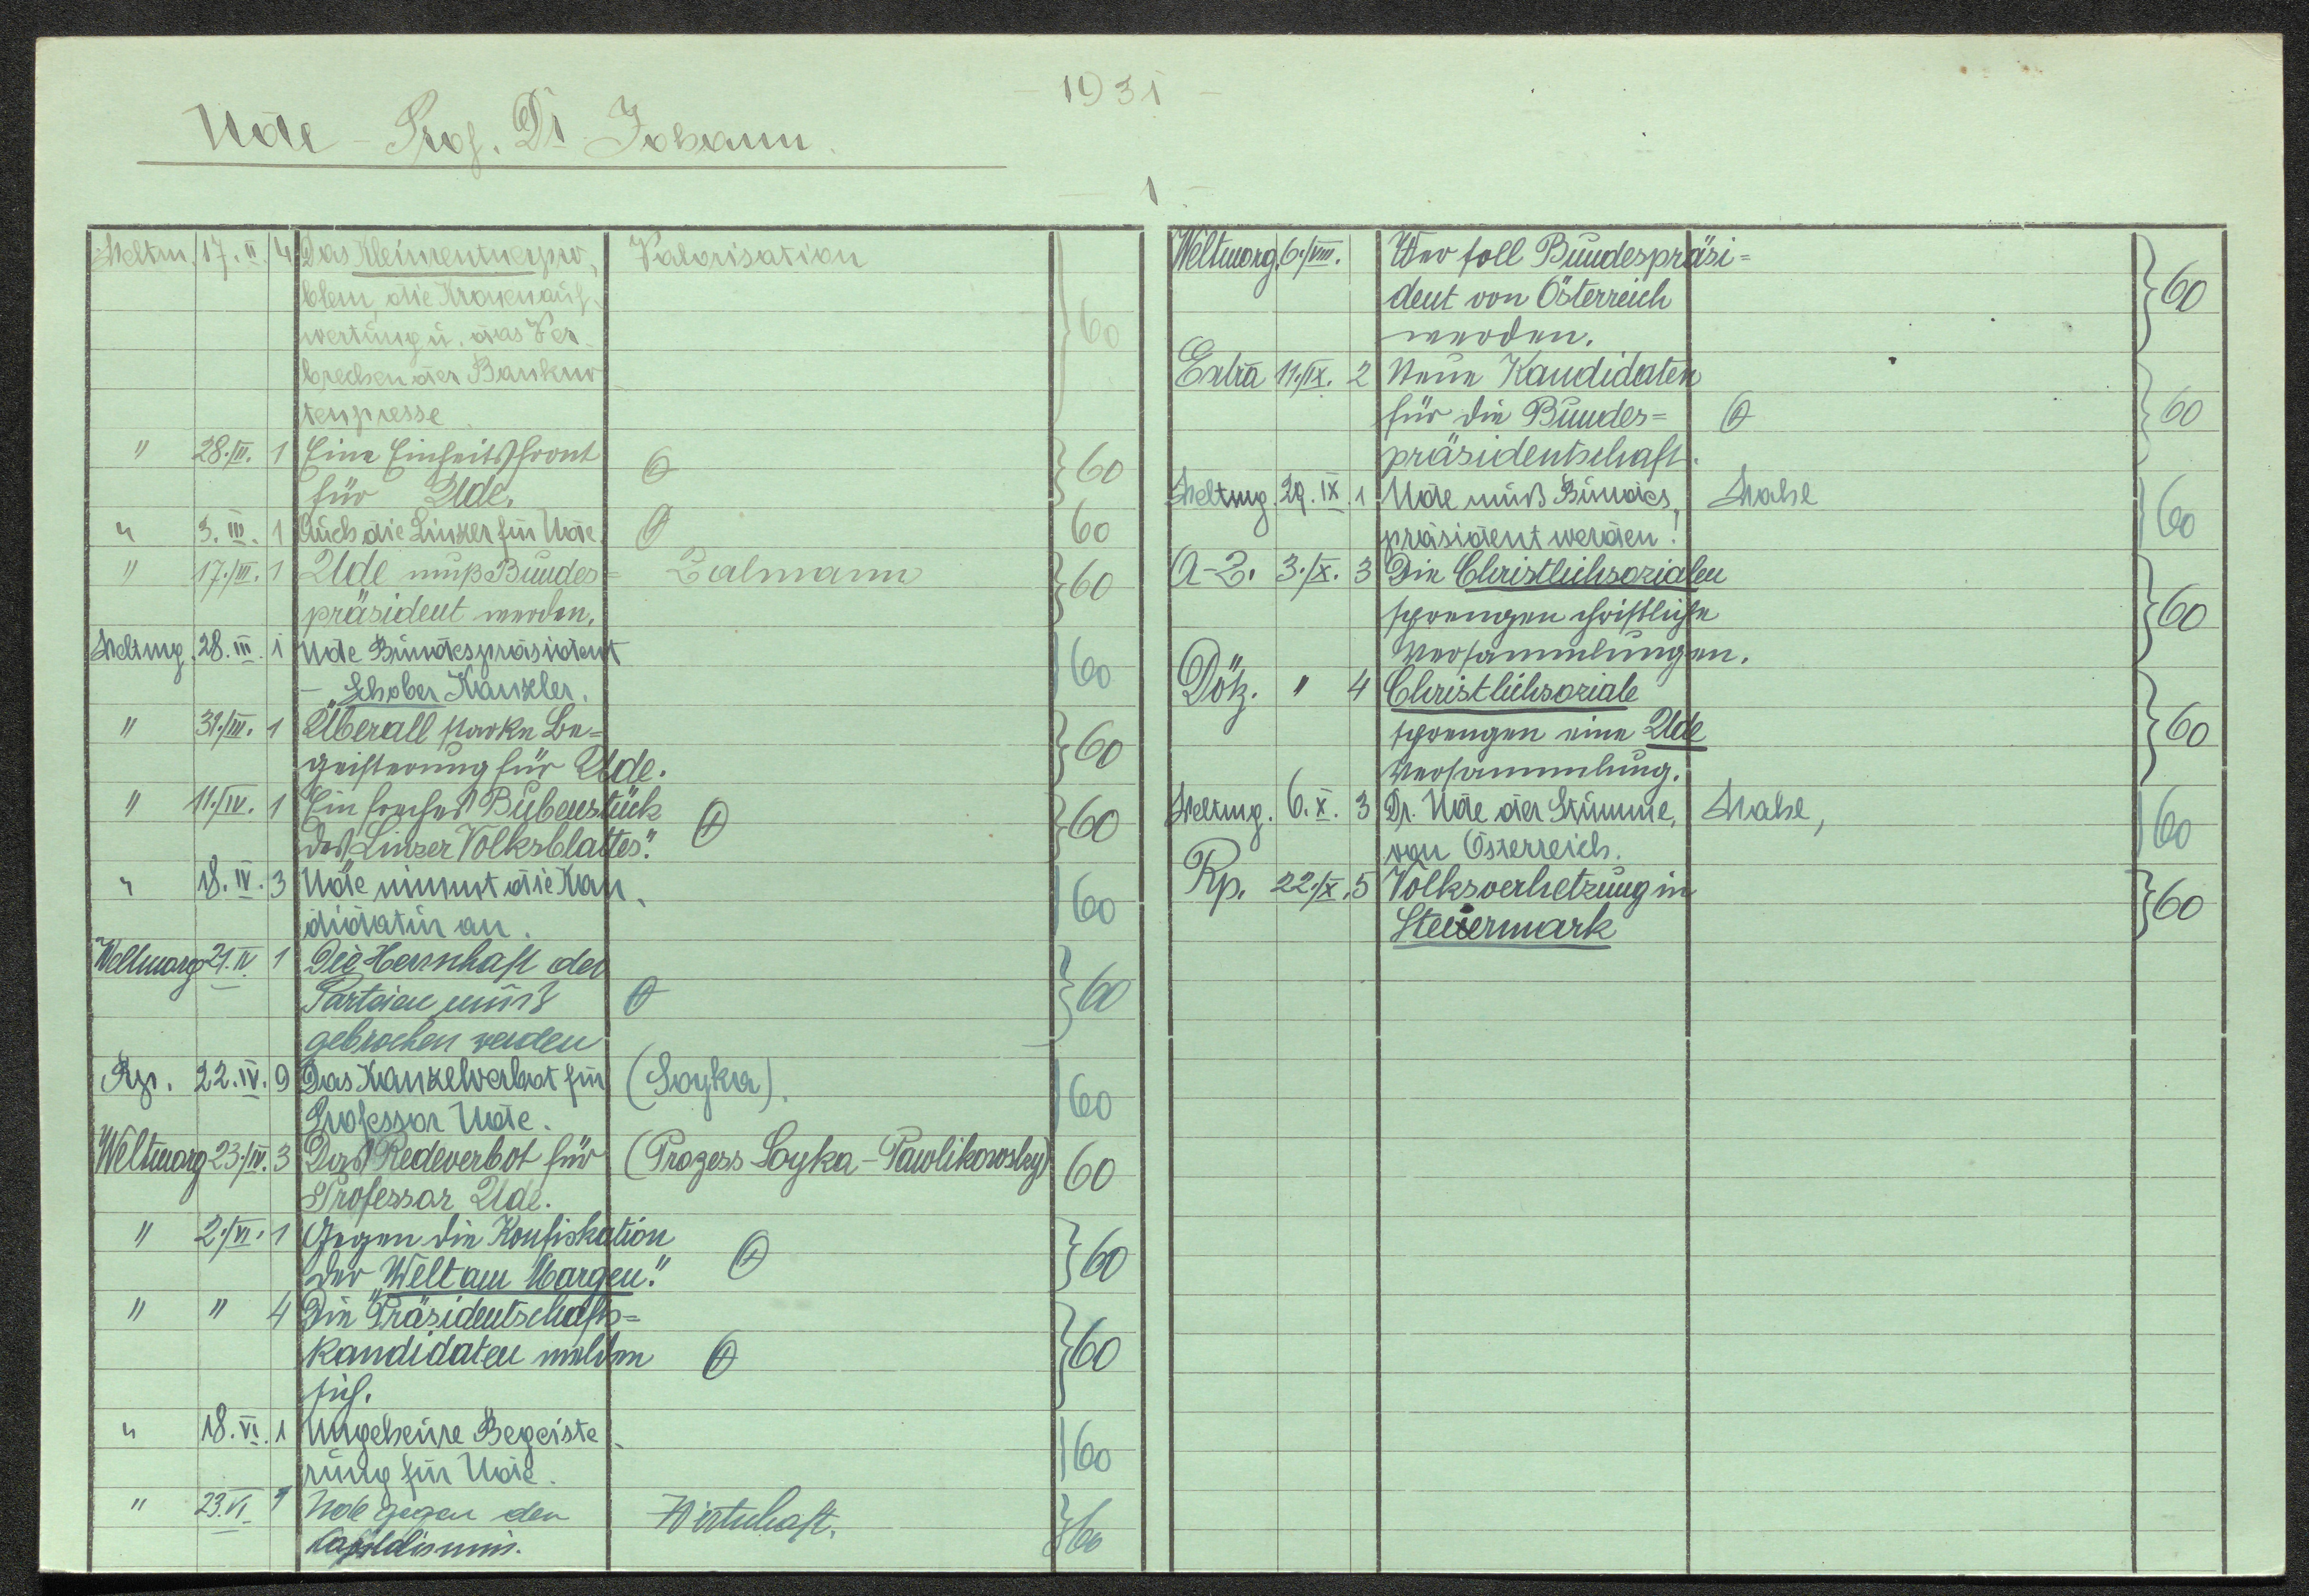 - 1931 -
Ude - Prof. Dr Johann.
- 1 -
Weltm. 17. II. 4 Das Kleinrentnerpro- Valorisation
blem, die Kronenauf-
wertung u. das Ver-
brechen der Bankno
tenpresse 60
" 28./II. 1 Eine Einheitsfront
für Ude. 60
" 3. III. 1 Auch die Linzer für Ude. 60
" 17./III. 1 Ude muß Bundes= Zalmann
präsident werden. 60
Weltmg. 28. III. 1 Ude Bundespräsident
- Schober Kanzler. 60
" 31./III. 1 Überall starke Be=
geisterung für Ude. 60
" 11./IV. 1 Ein freches Bubenstück
des „Linzer Volksblattes." 60
" 18. IV. 3 Ude nimmt die Kan-
didatur an. 60
Weltmorg 21. IV 1 Die Herrschaft der
Parteien muß
gebrochen werden 60
Rp. 22. IV. 9 Das Kanzelverbot für (Soyka).
Professor Ude. 60
Weltmorg 23./IV. 3 Das Redeverbot für (Prozess Soyka - Pawlikowsky)
Professor Ude. 60
" 2./VI. 1 Gegen die Konfiskation
der „Welt am Morgen." 60
" " 4 Die Präsidentschafts=
kandidaten melden
sich. 60
" 18. VI. 1 Ungeheure Begeiste-
rung für Ude. 60
" 23. VI 1 Ude gegen den Wirtschaft.
Kapitalismus. 60
Weltmorg. 6./VIII. Wer soll Bundespräsi=
dent von Österreich
werden. 60
Extra 11./IX. 2 Neue Kandidaten
für die Bundes=
präsidentschaft. 60
Weltmg. 29. IX. 1 Ude muß Bundes- Wahl
präsident werden! 60
A-Z. 3./X. 3 Die Christlichsozialen
sprengen christliche
Versammlungen. 60
Dötz. " 4 Christlichsoziale
sprengen eine Ude
Versammlung. 60
Weltmg. 6. X. 3 Dr. Ude der Stimme, Wahl,
von Österreich. 60
Rp. 22./X. 5 Volksverhetzung in
Steiermark 60